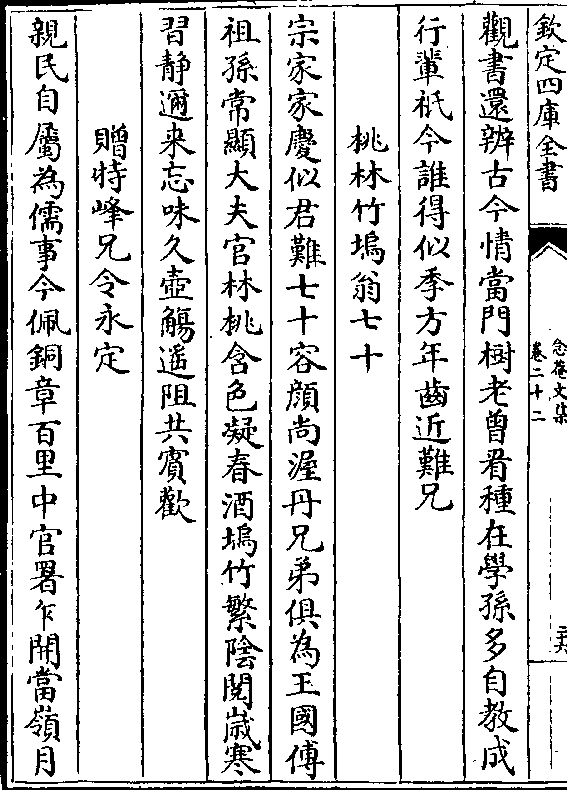 欽定四庫全書
念菴文集
卷二十二
觀書還辨古今情當門樹老曾看種在學孫多自教成
行輩祇今誰得似季方年齒近難兄
桃林竹塢翁七十
宗家家慶似君難七十容顔尚渥丹兄弟俱為王國傅
祖孫常顯大夫官林桃含色凝春酒塢竹繁陰閱歳寒
習静邇来忘味久壺觴遥阻共賓歡
贈特峰兄令永定
親民自屬為儒事今佩銅章百里中官署乍開當嶺月